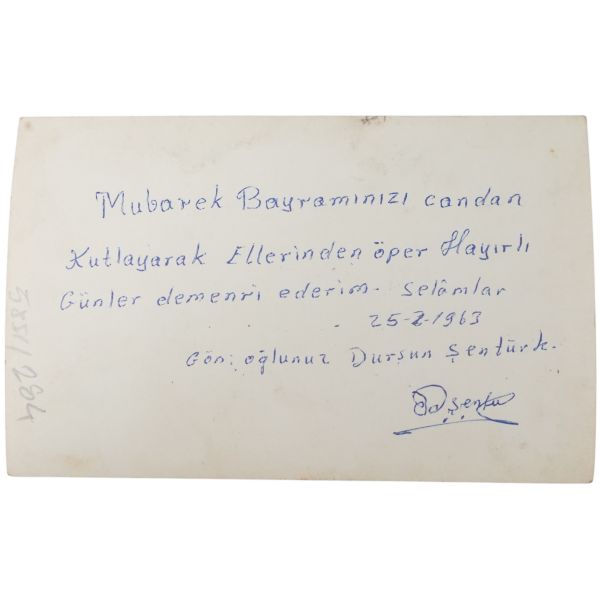 Mubarek Bayramınızı candan
Kutlayarak Ellerinden öper Hayırlı
Günler demenri ederim. Selâmlar
25-2-1963
Gön: oğlunuz Durşun Şentürk.